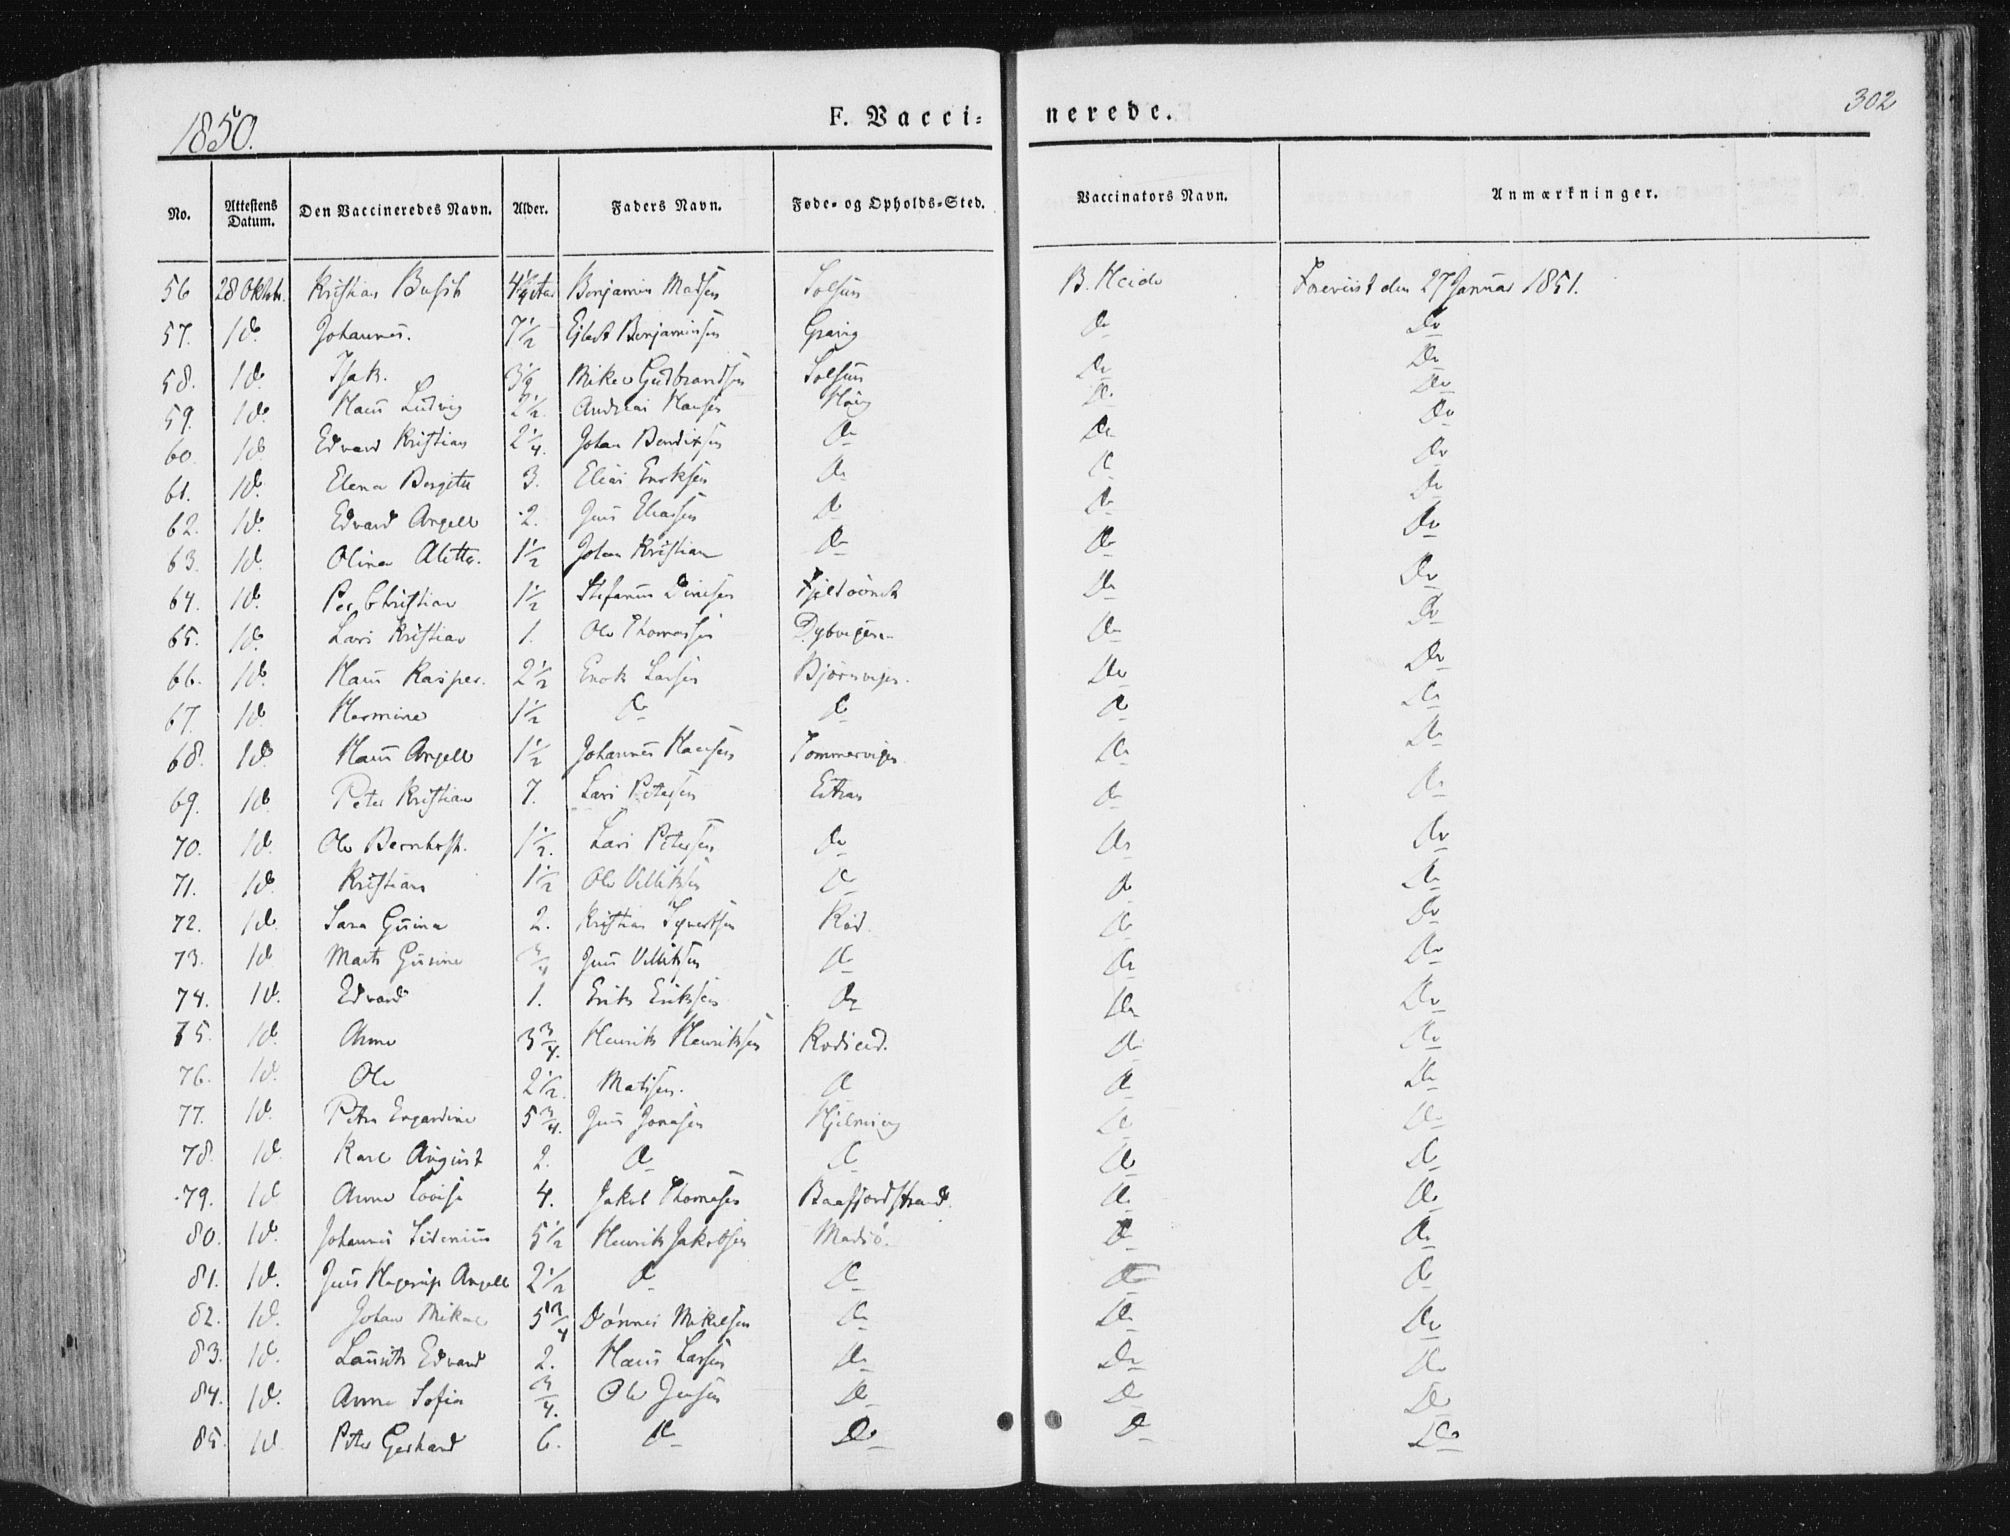 1850.
F. Vacci= nerede.
302
No. Attestens Datum. Den Vaccineredes Navn. Alder. Faders Navn. Føde= og Opholds=Sted. Vaccinators Navn. Anmærkninger.
56 28 Oktb. Kristian 4 Benjamin Madsen Solsem B. Heide Forevist den 27 Januar 1851.
57. Id. Johannes. 7½ Benjaminsen Do Do
58. Id. Isak. 3½ Mikel Gudbrandsen Solsem Do Do
59. Id. Hans Ludvig 2½. Andreas Hansen Do Do
60. Id. Edvard Kristian 2¼. Johan Bendixsen Do Do Do
61. Id. Elena Bergitte 3. Elias Enoksen Do Do Do
62. Id. Edvard Angell 2. Jens Eliassen Do Do Do
63. Id. Olina Alette. 1½ Johan Kristian Do Do Do
64. Id. Per Christian 1½ Do Do
65. Id. Lars Kristian 1. Ole Thomassen Dybvigen Do Do
66. Id. Hans Kasper. 2½ Enok Larsen Bjørnvigen. Do Do
67. Id. Hermine 1½ Do Do Do Do
68. Id. Hans Angell 1½ Johannes Hansen Tømmervigen Do Do
69. Id. Peter Kristian 7. Lars Petersen Do Do
70. Id. Ole Bernhoft. 1½. Lars Petersen Do Do Do
71. Id. Kristian 1½ Ole Do Do Do
72. Id. Sara 2. Kristian Sivertsen Rød. Do Do
73. Id. ¾ Jens Do Do Do
74. Id. Edvard 1. Erik Eriksen Do Do Do
75. Id. Anne 3¾. Henrik Henriksen Rødseid. Do Do
76. Id. Ole 2½. Matisen. Do Do Do
77. Id. 5¾. Jens Jonasen Do Do
78. Id. Karl August 2. Do Do Do Do
79. Id. Anne Lovise 4. Jakob Thomasen Do Do
80. Id. Johannes Sidenius 5½ Henrik Jakobsen Madsø. Do Do
81. Id. Jens Hagerup Angell 2½ Do Do Do Do
82. Id. Johan Mikal 5¾ Dønnes Mikelsen Do Do Do
83. Id. Edvard 2. Hans Larsen Do Do Do
84. Id. Anne Sofia ¾. Ole Jensen Do Do Do
85. Id. Peter Gerhard 6. Do Do Do Do